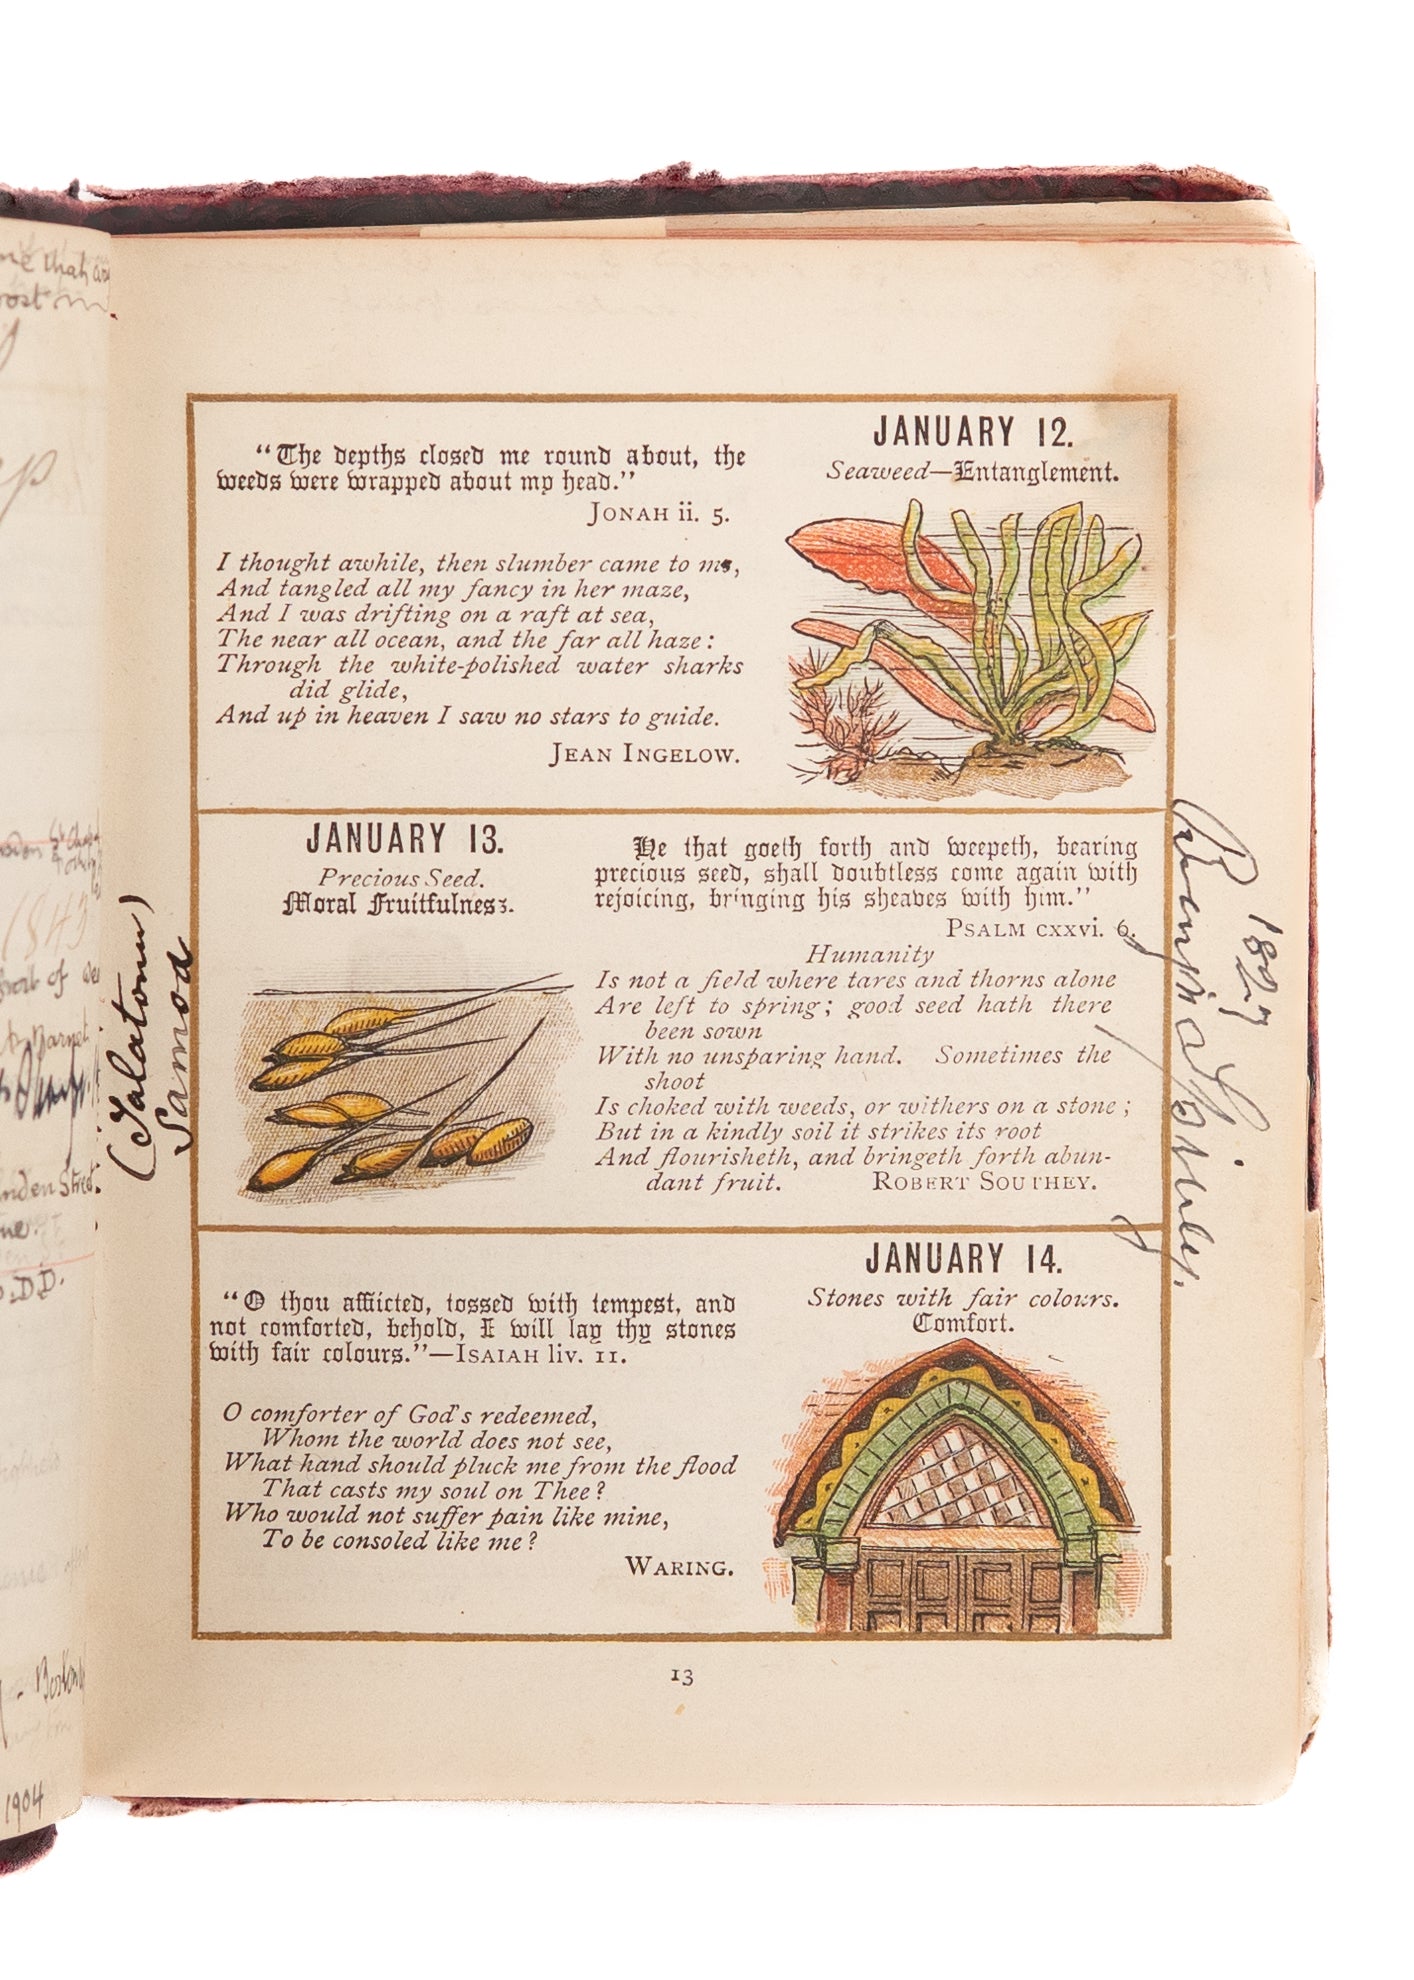 JANUARY 12.
Seaweed—Entanglement.
“The depths closed me round about, the
weeds were wrapped about my head.”
JONAH ii. 5.
I thought awhile, then slumber came to me,
And tangled all my fancy in her maze,
And I was drifting on a raft at sea,
The near all ocean, and the far all haze:
Through the white-polished water sharks
did glide,
And up in heaven I saw no stars to guide.
JEAN INGELOW.
JANUARY 13.
Precious Seed.
Moral Fruitfulness.
He that goeth forth and weepeth, bearing
precious seed, shall doubtless come again with
rejoicing, bringing his sheaves with him.”
PSALM cxxvi. 6.
Humanity
Is not a field where tares and thorns alone
Are left to spring; good seed hath there
been sown
With no unsparing hand. Sometimes the
shoot
Is choked with weeds, or withers on a stone;
But in a kindly soil it strikes its root
And flourisheth, and bringeth forth abun-
dant fruit. ROBERT SOUTHEY.
JANUARY 14.
Stones with fair colours.
Comfort.
“O thou afflicted, tossed with tempest, and
not comforted, behold, I will lay thy stones
with fair colours.”—ISAIAH liv. 11.
O comforter of God's redeemed,
Whom the world does not see,
What hand should pluck me from the flood
That casts my soul on Thee?
Who would not suffer pain like mine,
To be consoled like me?
WARING.
13
Samoa
1827
1843
Street.
D.D.
1904